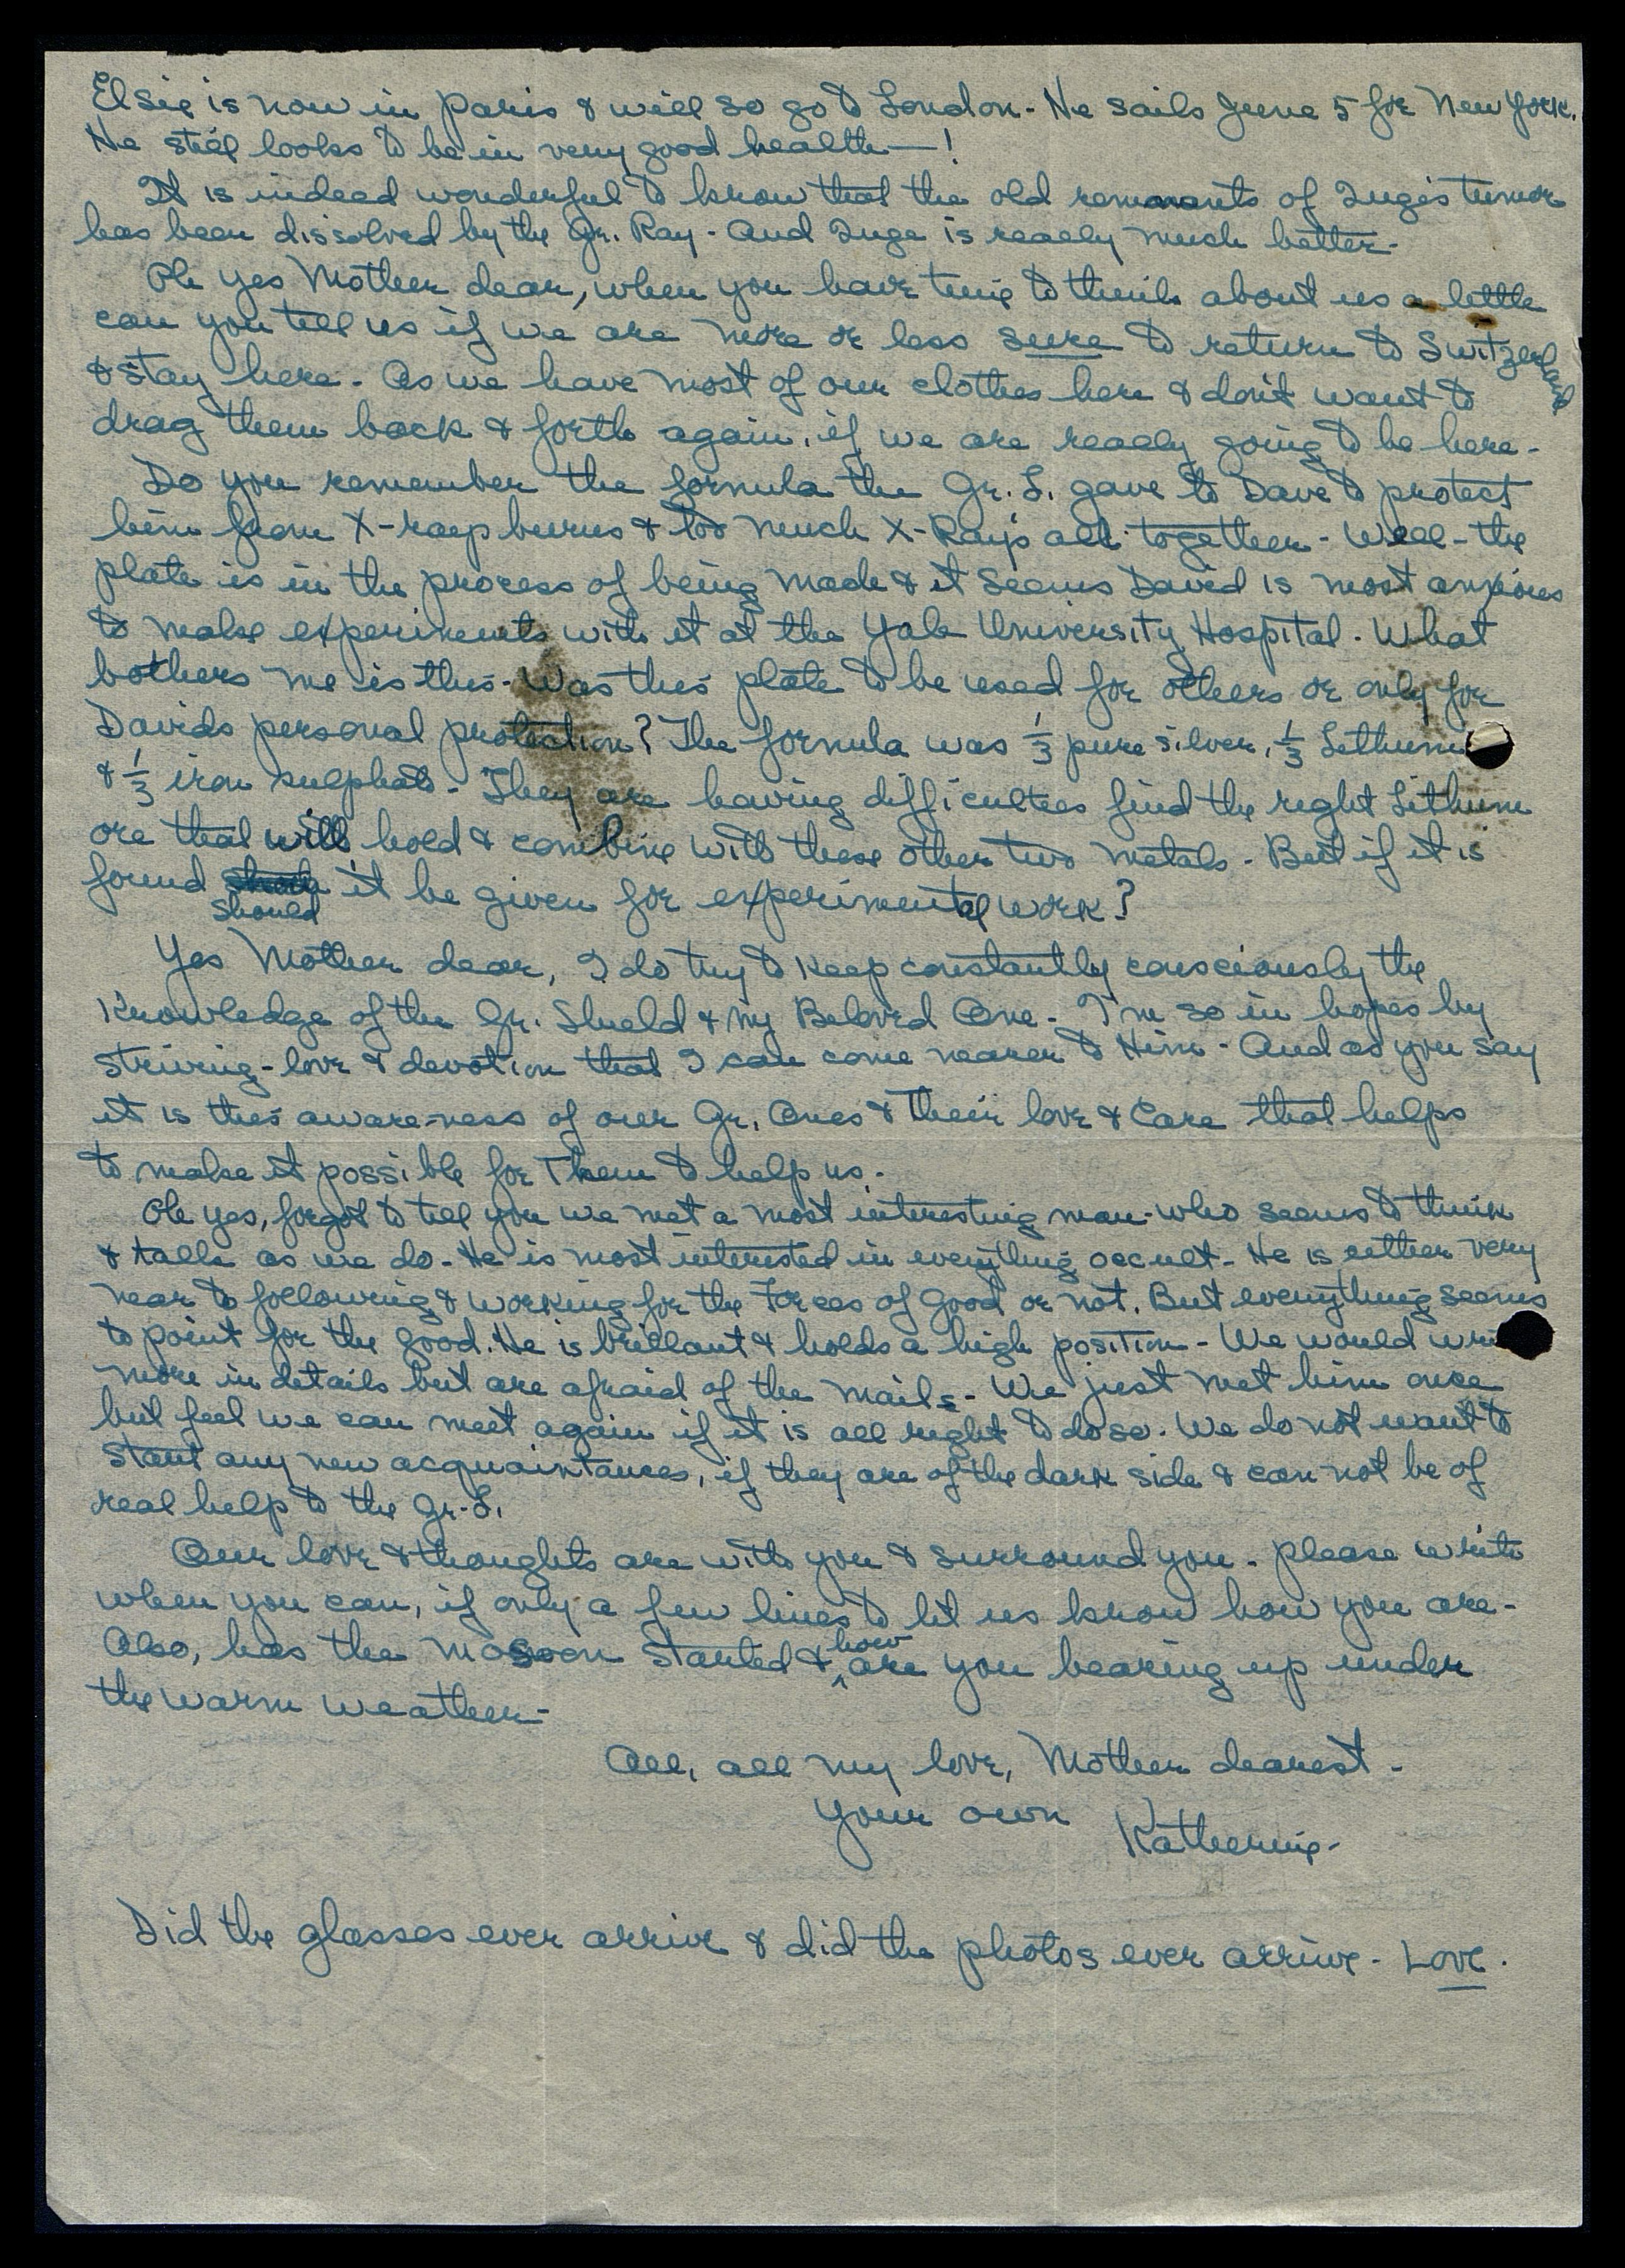 Elsie is now in Paris & will so go to London - He sails June 5 for New York.
He still looks to be in very good health—!
It is indeed wonderful to know that the old remanants of Inge's tumor
has been dissolved by the Gr. Ray - And Inge is really much better -
Oh yes Mother dear, when you have time to think about us a little
can you tell us if we are more or less sure to return to Switzerland
& stay here. As we have most of our clothes here & don't want to
drag them back & forth again, if we are really going to be here -
Do you remember the formula the Gr. L. gave to Dave to protect
him from X-ray burns & too much X-Rays all together - Well - the
plate is in the process of being made & it seems David is most anxious
to make experiments with it at the Yale University Hospital. What
bothers me is this - Was this plate to be used for others or only for
Davids personal protection? The formula was 1/3 pure silver, 1/3 Lithium
& 1/3 iron sulphate - They are having difficulties find the right Lithium
ore that will hold & combine with these other two metals - But if it is
found should it be given for experimental work?
Yes Mother dear, I do try to keep constantly consciously the
Knowledge of the Gr. Shield & my Beloved One - I'm so in hopes by
striving - love & devotion that I can come nearer to Him - And as you say
it is this aware-ness of our Gr. Ones & Their love & Care that helps
to make it possible for Them to help us.
Oh yes, forgot to tell you we met a most interesting man - who seems to think
& talk as we do - He is most interested in everything occult - He is either very
near to following & working for the Forces of Good or not. But everything seems
to point for the good. He is brillant & holds a high position - We would
more in details but are afraid of the mails - We just met him once
but feel we can meet again if it is all right to do so. We do not want to
start any new acquaintances, if they are of the dark side & can not be of
real help to the Gr. L.
Our love & thoughts are with you & surround you - please write
when you can, if only a few lines to let us know how you are -
Also, has the mosoon started & how are you bearing up under
the warm weather -
All, all my love, Mother dearest -
Your own Katherine -
Did the glasses ever arrive & did the photos ever arrive - Love.